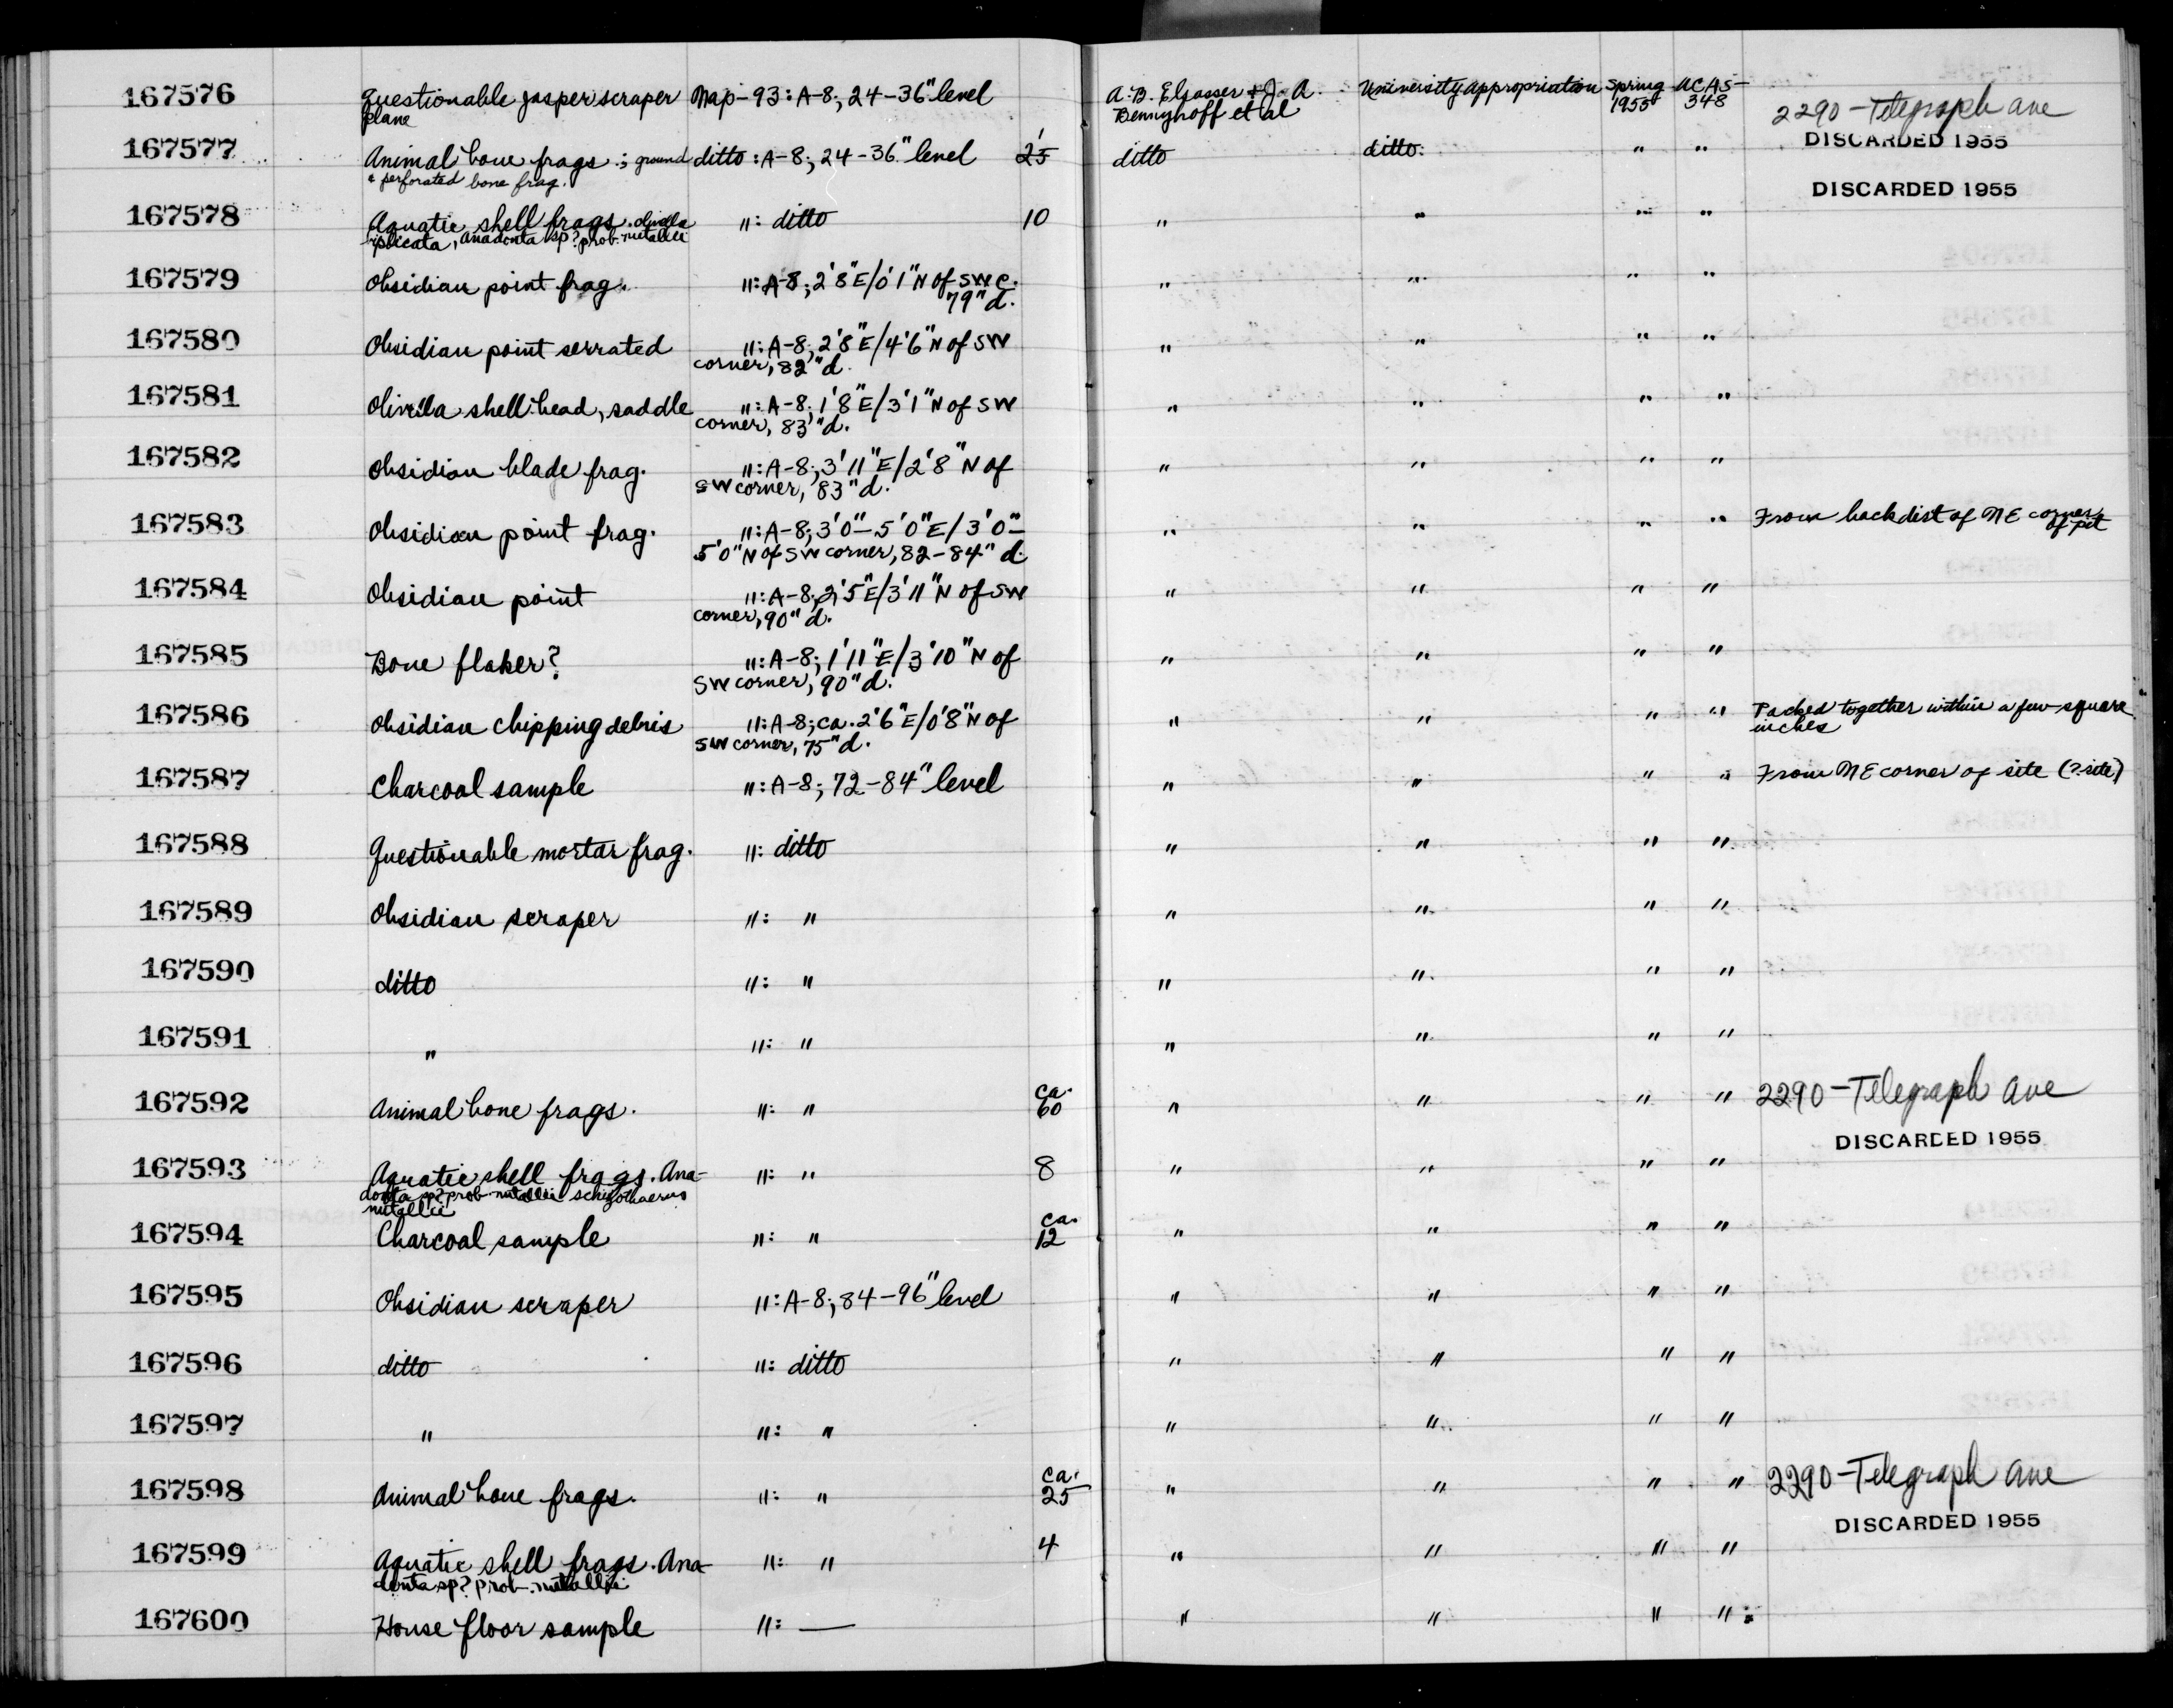 167576 Questionable jasper scraper Nap-93: A-8, 24-36" level A. B. Elsasser & J. A. University appropriation Spring UCAS-
plane Bennyhoff et al 1955 348 2290-Telegraph Ave
DISCARDED 1955
167577 Animal bone frags.; ground ditto: A-8; 24-36" level 25 ditto ditto " "
& perforated bone frag. DISCARDED 1955
167578 Aquatic shell frags. olivella ": ditto 10 " " " "
biplicata, anadonta sp? prob. nutallii
167579 Obsidian point frag. ": A-8; 2'8"E/0'1"N of SW c. " " " "
79"d.
167580 Obsidian point serrated ": A-8, 2'8"E/4'6"N of SW " " " "
corner, 82"d.
167581 Olivella shell bead, saddle ": A-8, 1'8"E/3'1"N of SW " " " "
corner, 83"d.
167582 Obsidian blade frag. ": A-8; 3'11"E/2'8"N of " " " "
SW corner, 83"d.
167583 Obsidian point frag. ": A-8; 3'0"-5'0"E/3'0"- " " " " From backdirt of NE corner
5'0"N of SW corner, 82-84" d. of pit
167584 Obsidian point ": A-8, 2'5"E/3'11"N of SW " " " "
corner, 90"d.
167585 Bone flaker? ": A-8; 1'11"E/3'10"N of " " " "
SW corner, 90"d.
167586 Obsidian chipping debris ": A-8; ca. 2'6"E/0'8"N of " " " " Packed together within a few square
SW corner, 75"d. inches
167587 Charcoal sample ": A-8; 72-84" level " " " " From NE corner of site (?site)
167588 Questionable mortar frag. ": ditto " " " "
167589 Obsidian scraper ": " " " " "
167590 ditto ": " " " " "
167591 " ": " " " " "
167592 Animal bone frags. ": " ca. 60 " " " " 2290-Telegraph Ave
DISCARDED 1955
167593 Aquatic shell frags. Ana- ": " 8 " " " "
donta sp? prob. nutallii schizothaerus
nutallii
167594 Charcoal sample ": " ca. 12 " " " "
167595 Obsidian scraper ": A-8; 84-96" level " " " "
167596 ditto ": ditto " " " "
167597 " ": " " " " "
167598 Animal bone frags. ": " ca. 25 " " " " 2290-Telegraph Ave
DISCARDED 1955
167599 Aquatic shell frags. Ana- ": " 4 " " " "
donta sp? prob. nutallii
167600 House floor sample ": — " " " "